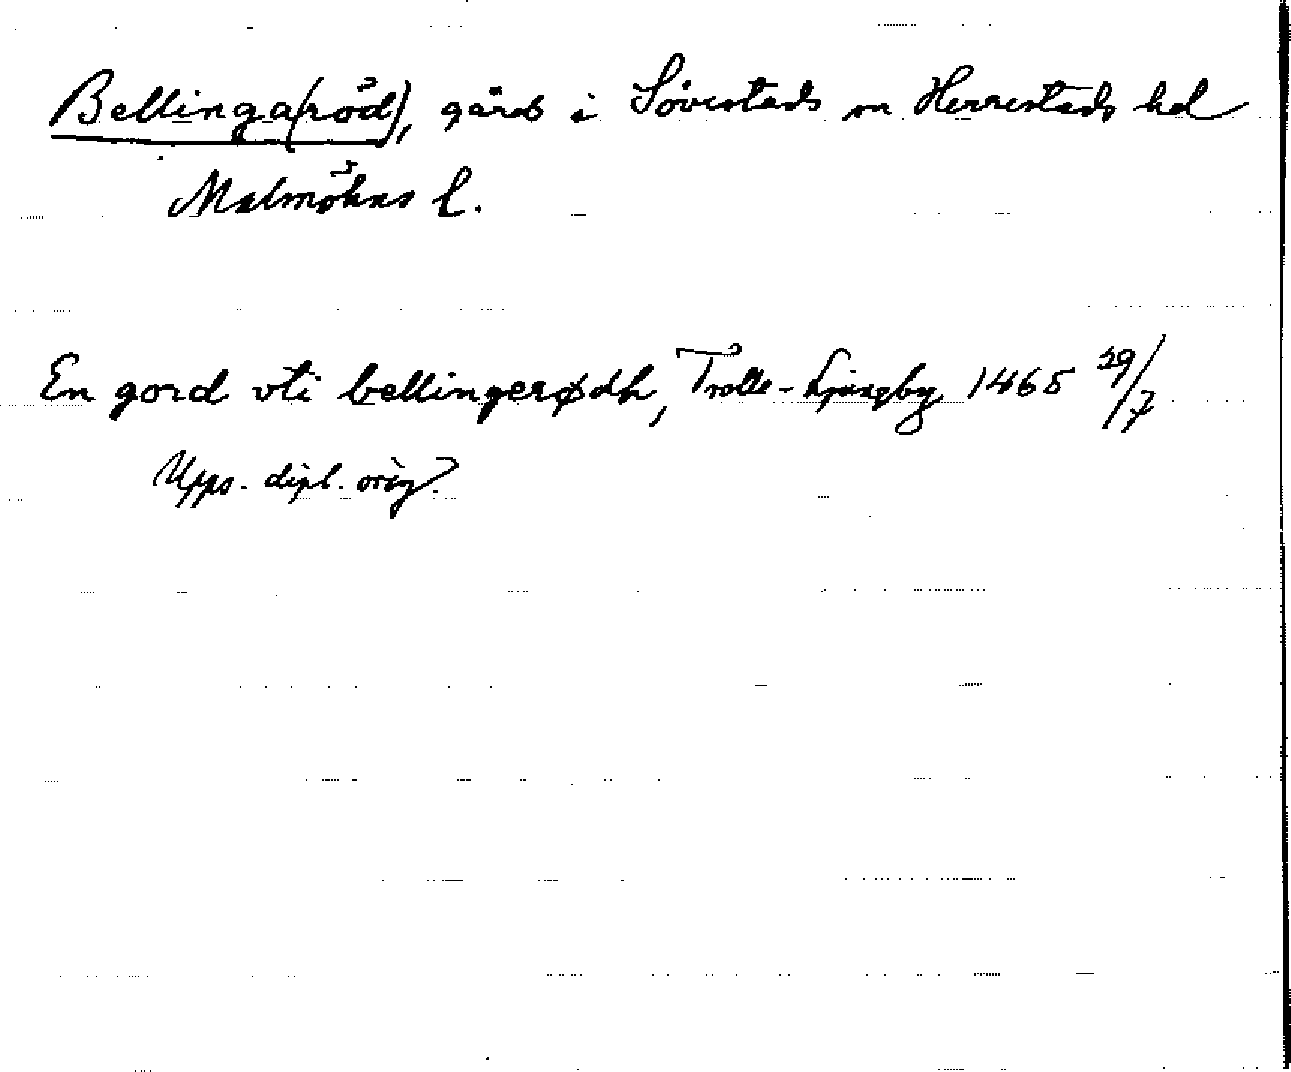 Bellinga(röd), gård i Sövestads sn Herrestads hd
Malmöhus l.
En gord vti bellingerødh, Trolle-Ljungby 1465 29/7
Upps. dipl. orig.